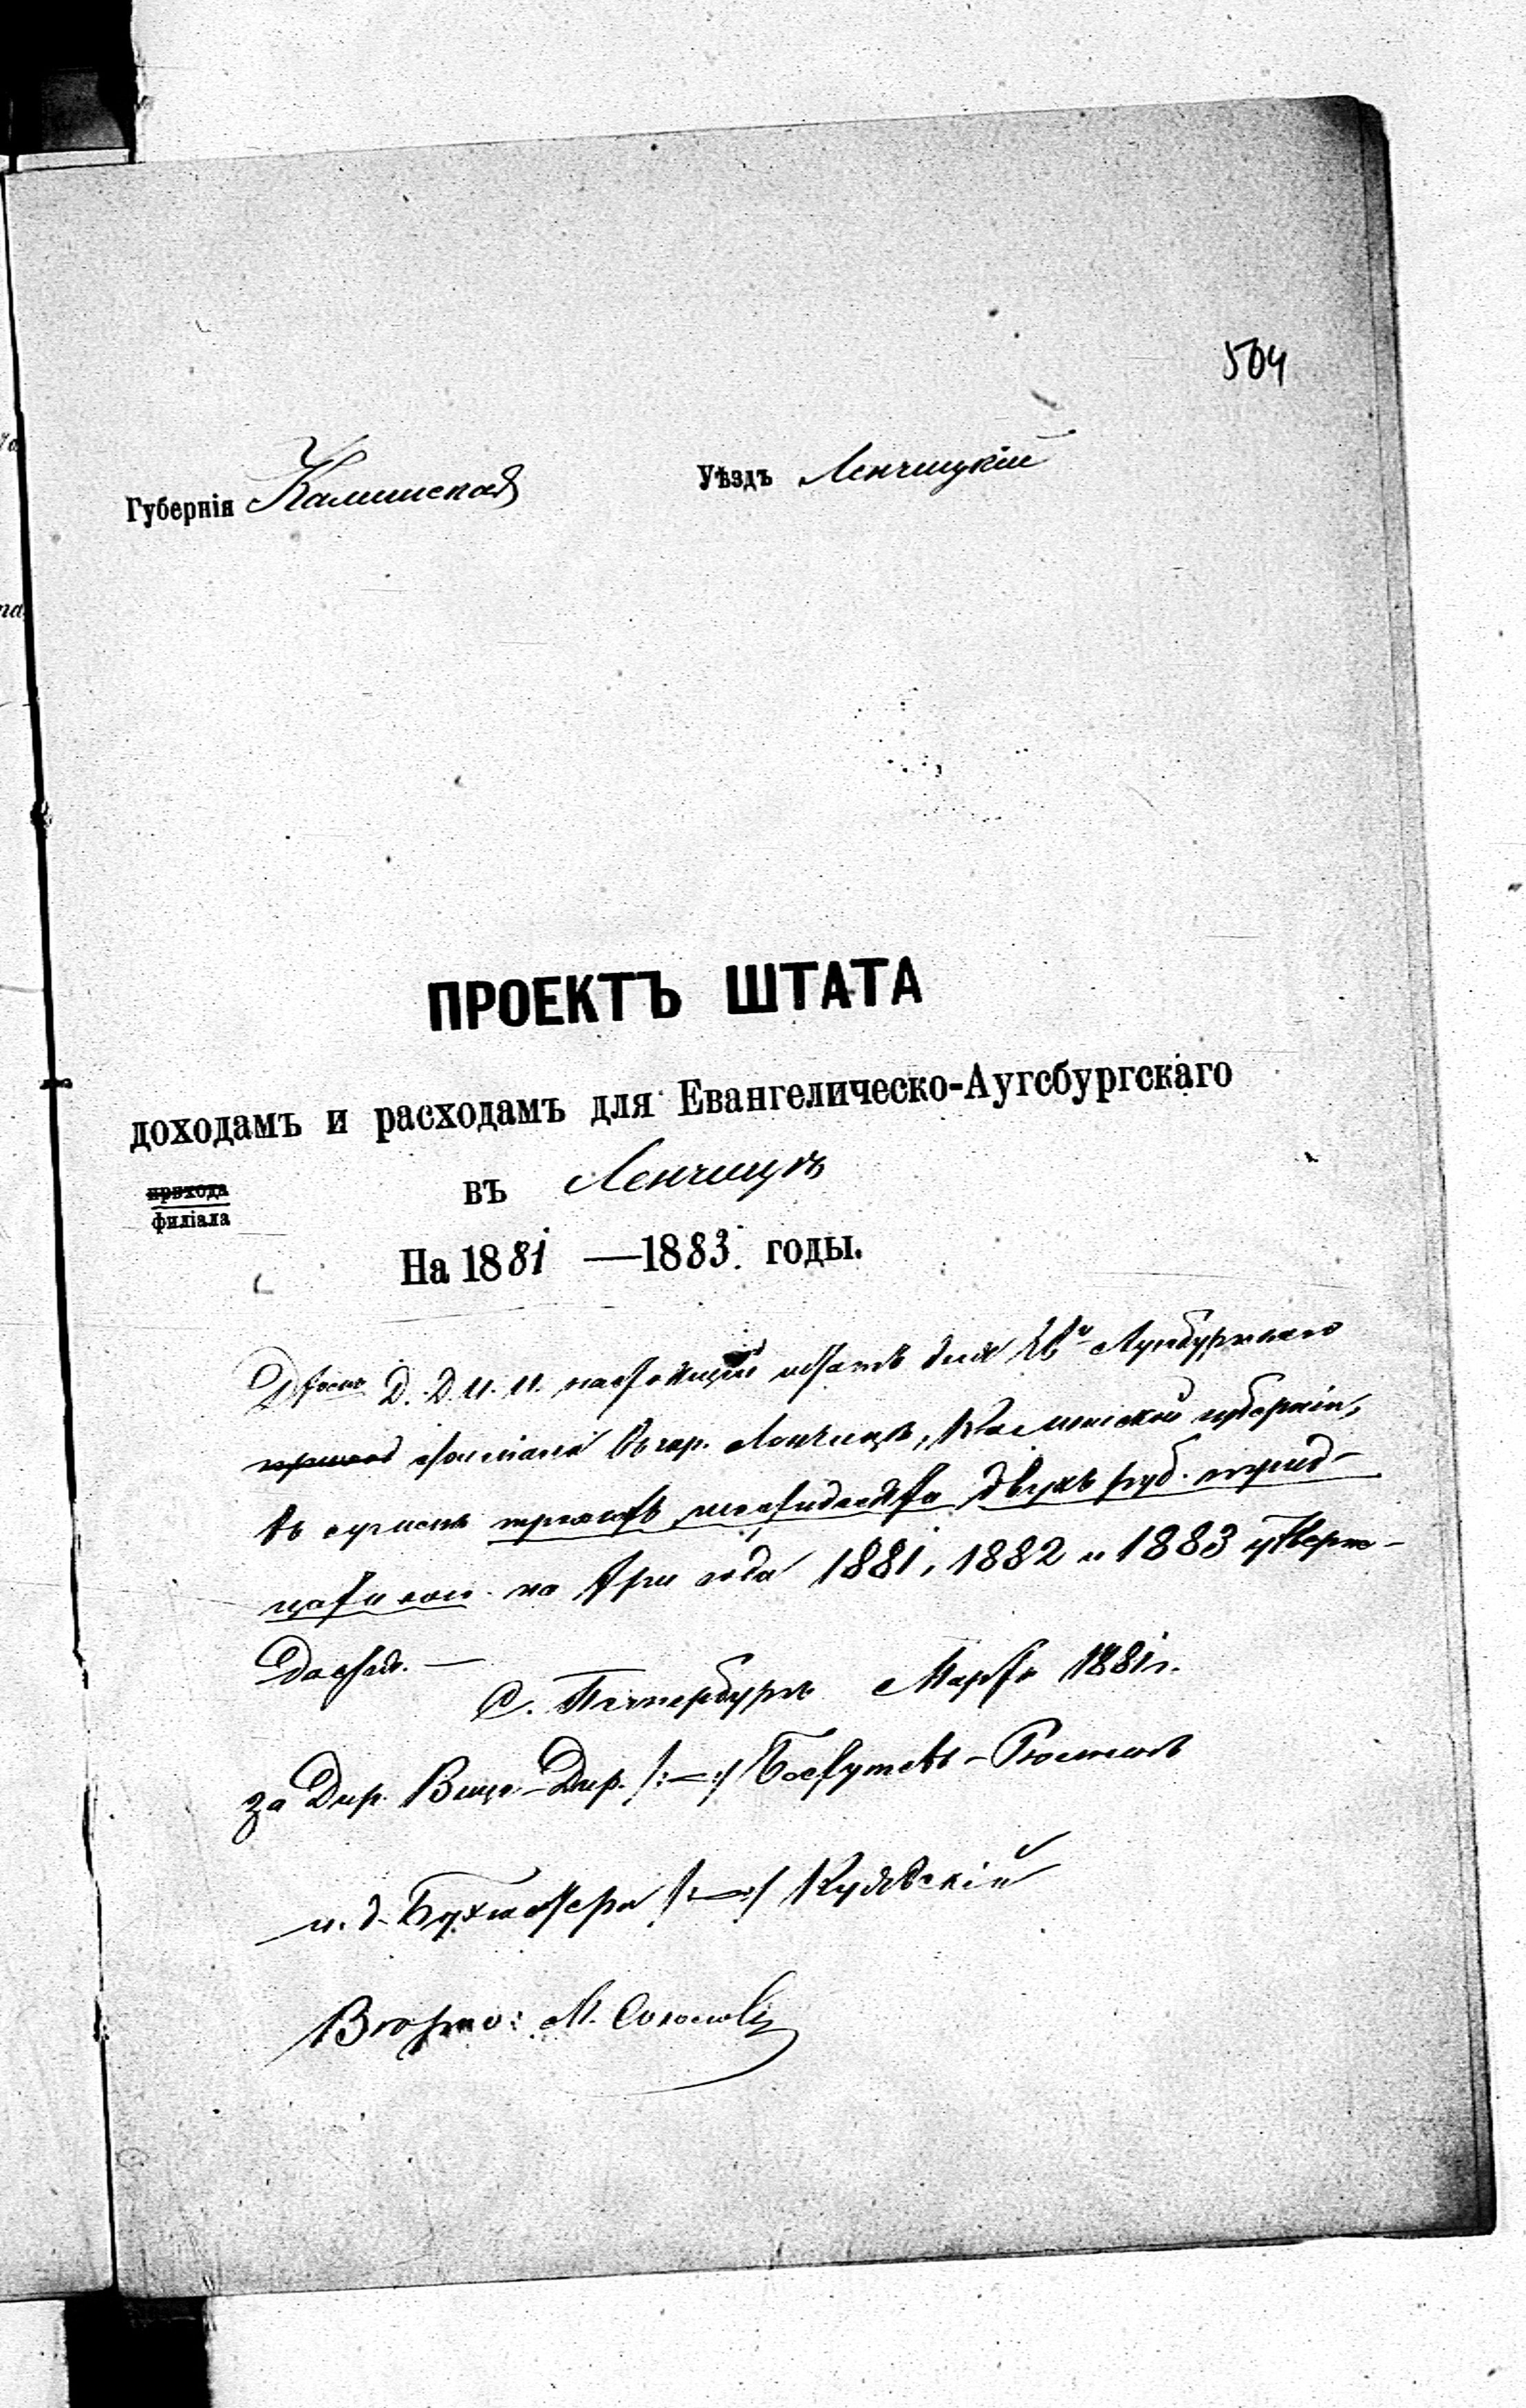 504
Губернія Калишская Уѣздъ Ленчицкій
ПРОЕКТЪ ШТАТА
доходамъ и расходамъ для Евангелическо-Аугсбургскаго
прихода
филіала
въ Ленчицѣ
На 1881 — 1883 годы.
Д. Д. И. И. настоящій штатъ для Ев. Аугсбургскаго
филіала въ гор. Ленчицѣ, Калишской губерніи,
въ суммѣ шестидесяти двухъ руб. трид-
цати коп. на три года 1881, 1882 и 1883 утверж-
дается. —
С. Петербургъ Марта 1881 г.
За Дир. Вице-Дир. /:—:/
и. д. Бухгалтера /:—:/ Кулявскій
Вѣрно: М.